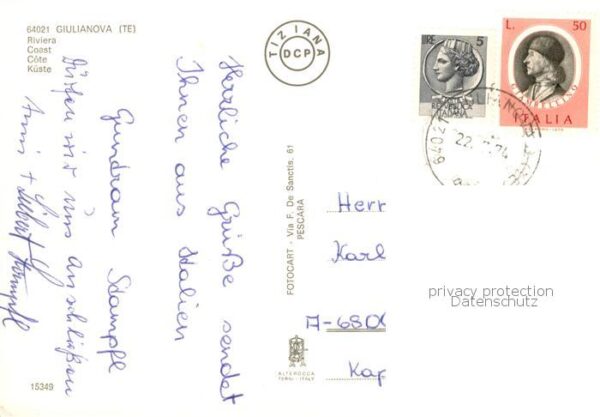 64021 GIULIANOVA (TE)
Riviera
Coast
Côte
Küste
Herzliche Grüße sendet
Ihnen aus Italien
Gundram Stampfl
Dürfen wir uns anschließen
+
TIZIANA
DCP
FOTOCART - Via F. De Sanctis, 61
PESCARA
ALTEROCCA
TERNI - ITALY
15349
LIRE 5
ITALIA
L. 50
ITALIA
64021
22.
74
Herr
Karl
A-6800
privacy protection
Datenschutz